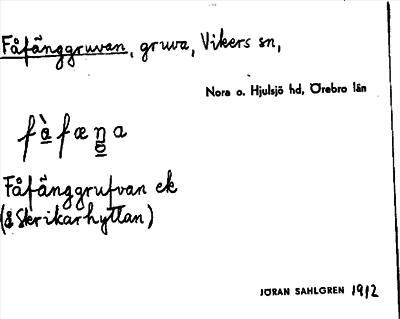 Fåfänggruvan, gruva, Vikers sn,
Nora o. Hjulsjö hd, Örebro län
fåfæŋa
Fåfänggrufvan ek
(å Skrikarhyttan)
JÖRAN SAHLGREN 1912